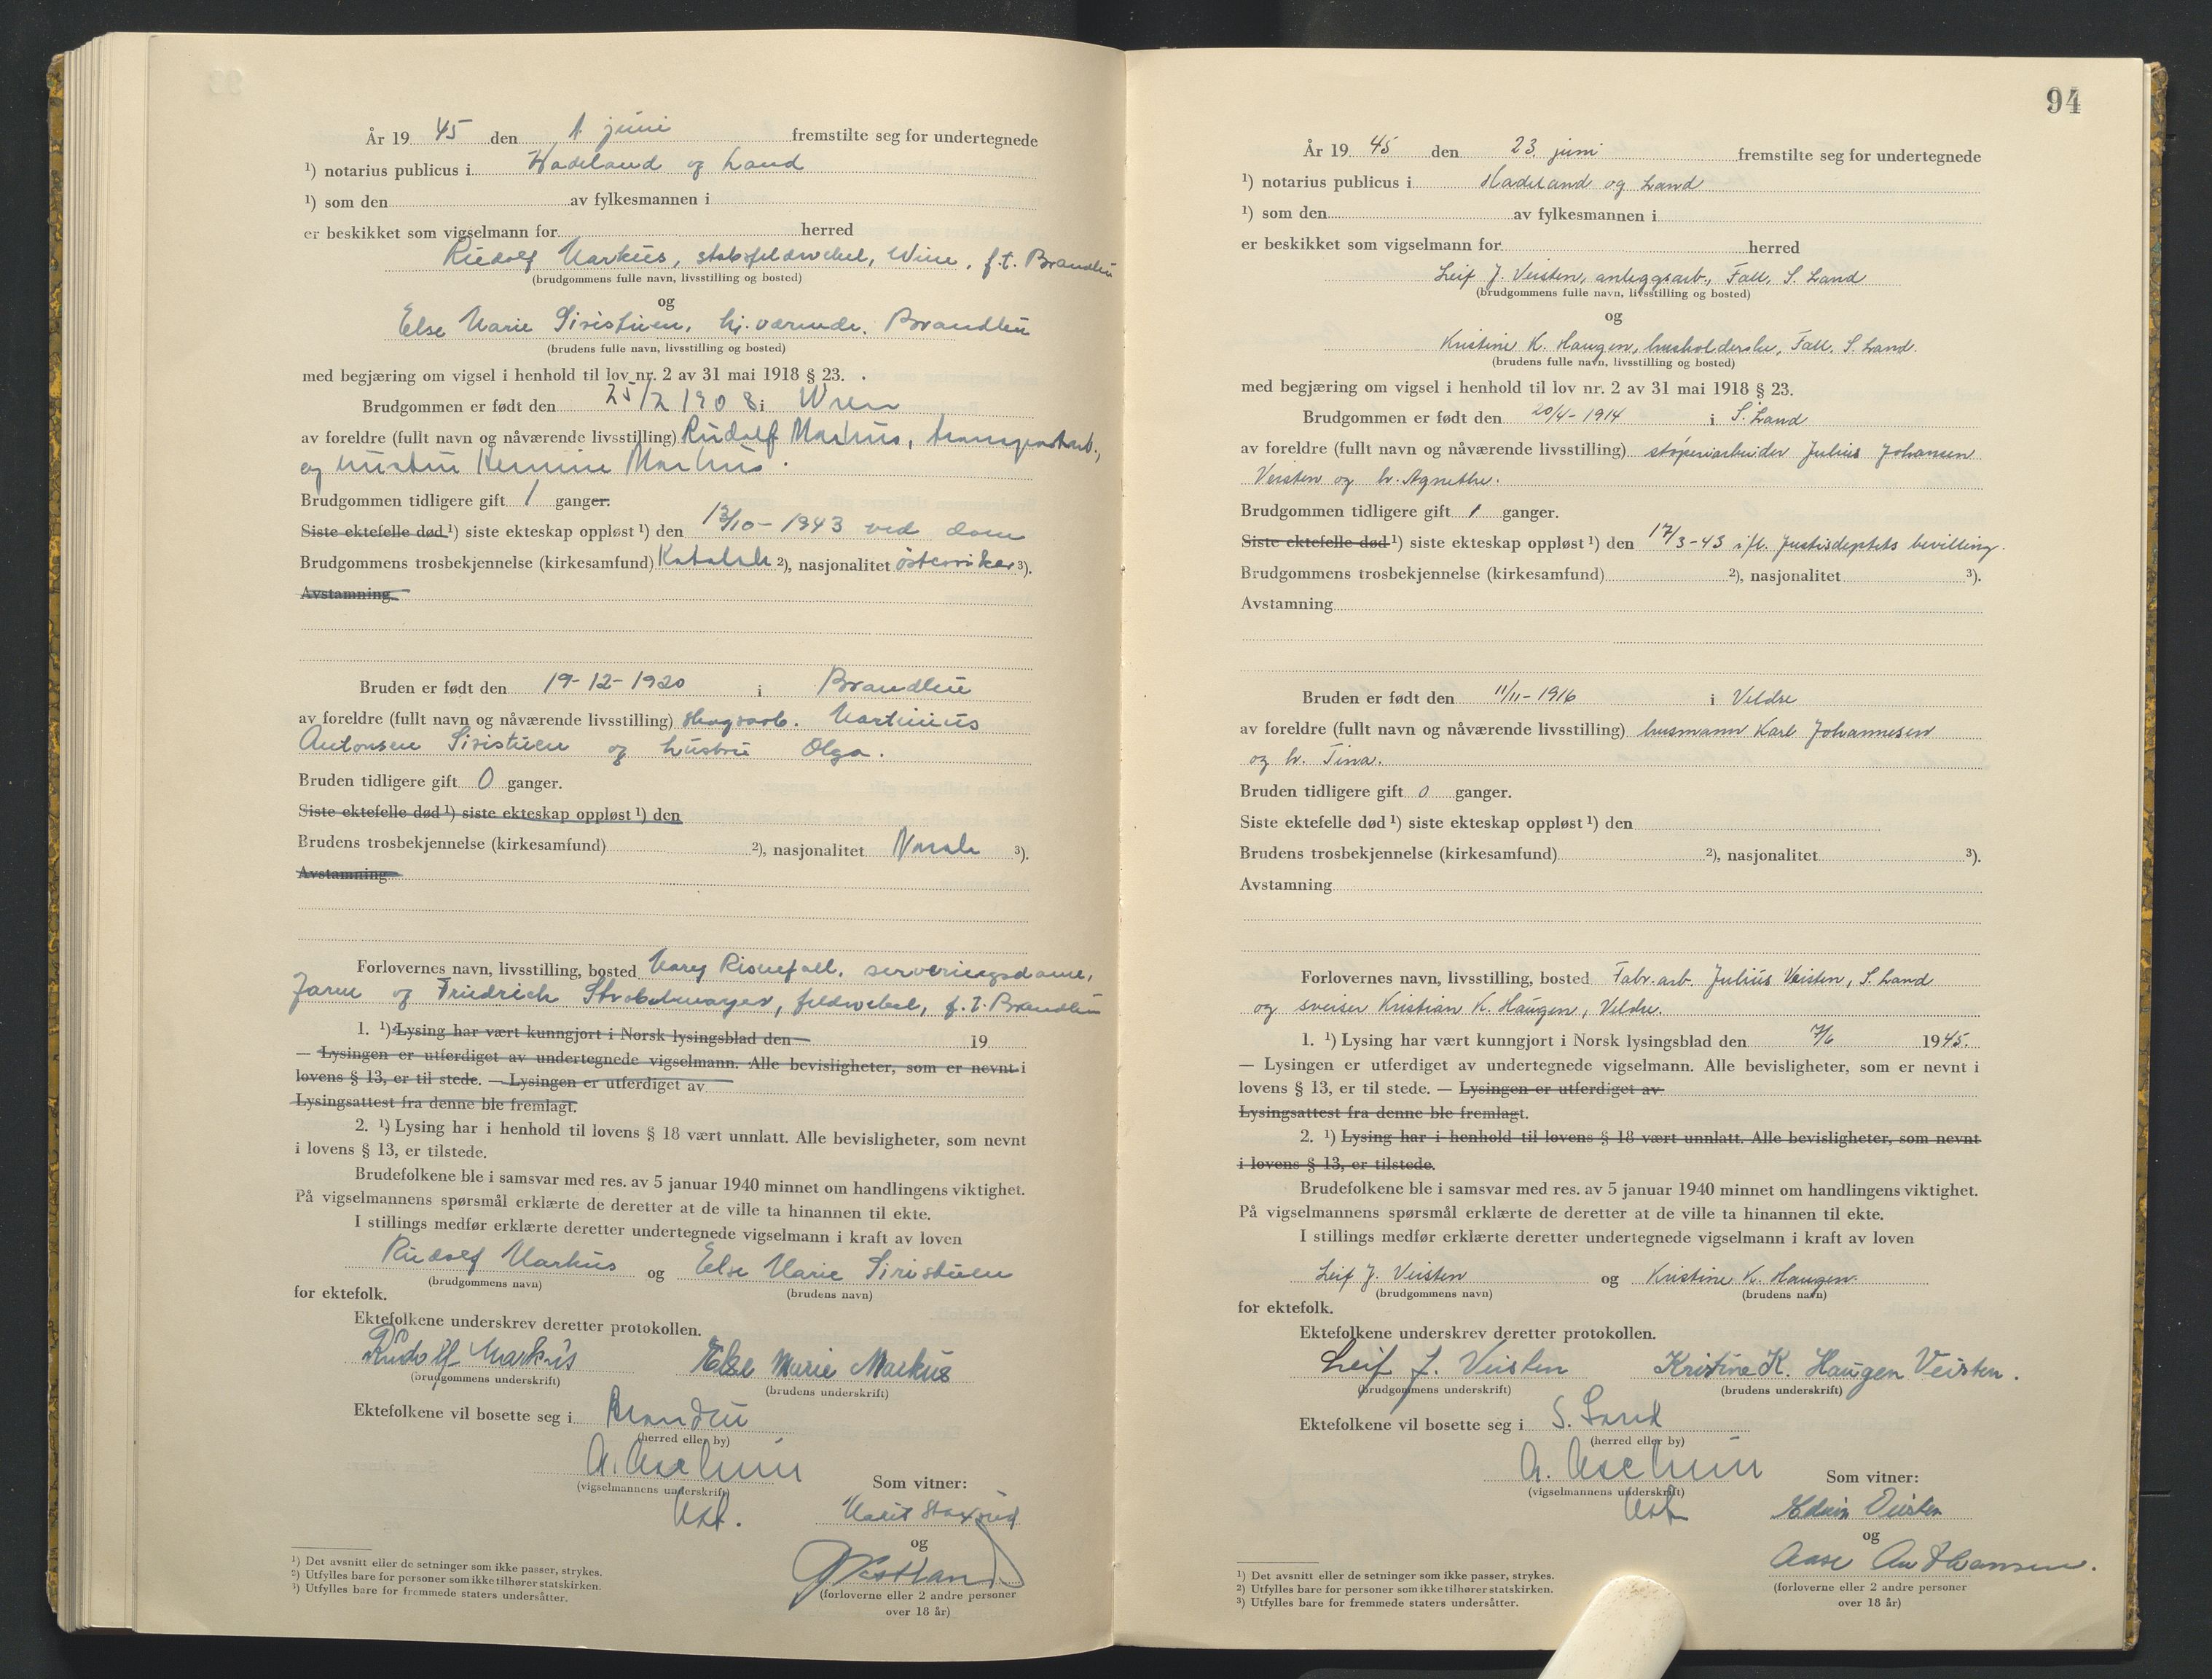 År 19 45 den 1 juni fremstilte seg for undertegnede
¹) notarius publicus i Hadeland og Land
¹) som den av fylkesmannen i
er beskikket som vigselmann for herred
Rudolf Markus, stabsfeldwebel, Wien, f.t. Brandbu
(brudgommens fulle navn, livsstilling og bosted)
og
Else Marie Siristuen, hj.værende, Brandbu
(brudens fulle navn, livsstilling og bosted)
med begjæring om vigsel i henhold til lov nr. 2 av 31 mai 1918 § 23.
Brudgommen er født den 25/2 1908 i Wien
av foreldre (fullt navn og nåværende livsstilling) Rudolf Markus, transportarb.,
og hustru Hermine Markus.
Brudgommen tidligere gift 1 ganger.
Siste ektefelle død ¹) siste ekteskap oppløst ¹) den 13/10 - 1943 ved dom
Brudgommens trosbekjennelse (kirkesamfund) Katolsk ²), nasjonalitet østerriker ³).
Avstamning
Bruden er født den 19-12-1920 i Brandbu
av foreldre (fullt navn og nåværende livsstilling) skogsarb. Martinius
Antonsen Siristuen og hustru Olga.
Bruden tidligere gift 0 ganger.
Siste ektefelle død ¹) siste ekteskap oppløst ¹) den
Brudens trosbekjennelse (kirkesamfund) ²), nasjonalitet Norsk ³).
Avstamning
Forlovernes navn, livsstilling, bosted Mary Risnefall, serveringsdame,
Jaren og Friedrich feldwebel, f.t. Brandbu
1. ¹) Lysing har vært kunngjort i Norsk lysingsblad den 19
— Lysingen er utferdiget av undertegnede vigselmann. Alle bevisligheter, som er nevnt i
lovens § 13, er til stede. — Lysingen er utferdiget av
Lysingsattest fra denne ble fremlagt.
2. ¹) Lysing har i henhold til lovens § 18 vært unnlatt. Alle bevisligheter, som nevnt
i lovens § 13, er tilstede.
Brudefolkene ble i samsvar med res. av 5 januar 1940 minnet om handlingens viktighet.
På vigselmannens spørsmål erklærte de deretter at de ville ta hinannen til ekte.
I stillings medfør erklærte deretter undertegnede vigselmann i kraft av loven
Rudolf Markus og Else Marie Siristuen
(brudgommens navn) (brudens navn)
for ektefolk.
Ektefolkene underskrev deretter protokollen.
Rudolf Markus Else Marie Markus
(brudgommens underskrift) (brudens underskrift)
Ektefolkene vil bosette seg i Brandbu
(herred eller by)
A. Aschim
(vigselmannens underskrift) Som vitner:
Marit Staxrud
og
(forloverne eller 2 andre personer
over 18 år)
¹) Det avsnitt eller de setninger som ikke passer, strykes.
²) Utfylles bare for personer som ikke tilhører statskirken.
³) Utfylles bare for fremmede staters undersåtter.
94
År 19 45 den 23. juni fremstilte seg for undertegnede
¹) notarius publicus i Hadeland og Land
¹) som den av fylkesmannen i
er beskikket som vigselmann for herred
Leif J. Veisten, anleggsarb., Fall, S. Land
(brudgommens fulle navn, livsstilling og bosted)
og
Kristine K. Haugen, husholderske, Fall, S. Land.
(brudens fulle navn, livsstilling og bosted)
med begjæring om vigsel i henhold til lov nr. 2 av 31 mai 1918 § 23.
Brudgommen er født den 20/4 - 1914 i S. Land
av foreldre (fullt navn og nåværende livsstilling) støperiarbeider Julius Johansen
Veisten og h. Agnethe.
Brudgommen tidligere gift 1 ganger.
Siste ektefelle død ¹) siste ekteskap oppløst ¹) den 17/3-43 ifl. Justisdeptets bevilling.
Brudgommens trosbekjennelse (kirkesamfund) ²), nasjonalitet ³).
Avstamning
Bruden er født den 11/11 - 1916 i Veldre
av foreldre (fullt navn og nåværende livsstilling) husmann Karl Johannesen
og h. Tina.
Bruden tidligere gift 0 ganger.
Siste ektefelle død ¹) siste ekteskap oppløst ¹) den
Brudens trosbekjennelse (kirkesamfund) ²), nasjonalitet ³).
Avstamning
Forlovernes navn, livsstilling, bosted Fabr.arb. Julius Veisten, S. Land
og sveiser Kristian K. Haugen, Veldre.
1. ¹) Lysing har vært kunngjort i Norsk lysingsblad den 7/6 1945.
— Lysingen er utferdiget av undertegnede vigselmann. Alle bevisligheter, som er nevnt i
lovens § 13, er til stede. — Lysingen er utferdiget av
Lysingsattest fra denne ble fremlagt.
2. ¹) Lysing har i henhold til lovens § 18 vært unnlatt. Alle bevisligheter, som nevnt
i lovens § 13, er tilstede.
Brudefolkene ble i samsvar med res. av 5 januar 1940 minnet om handlingens viktighet.
På vigselmannens spørsmål erklærte de deretter at de ville ta hinannen til ekte.
I stillings medfør erklærte deretter undertegnede vigselmann i kraft av loven
Leif J. Veisten og Kristine K. Haugen
(brudgommens navn) (brudens navn)
for ektefolk.
Ektefolkene underskrev deretter protokollen.
Leif J. Veisten Kristine K. Haugen Veisten.
(brudgommens underskrift) (brudens underskrift)
Ektefolkene vil bosette seg i S. Land
(herred eller by)
A. Aschim
(vigselmannens underskrift) Som vitner:
Edvin Veisten
og
Aase
(forloverne eller 2 andre personer
over 18 år)
¹) Det avsnitt eller de setninger som ikke passer, strykes.
²) Utfylles bare for personer som ikke tilhører statskirken.
³) Utfylles bare for fremmede staters undersåtter.